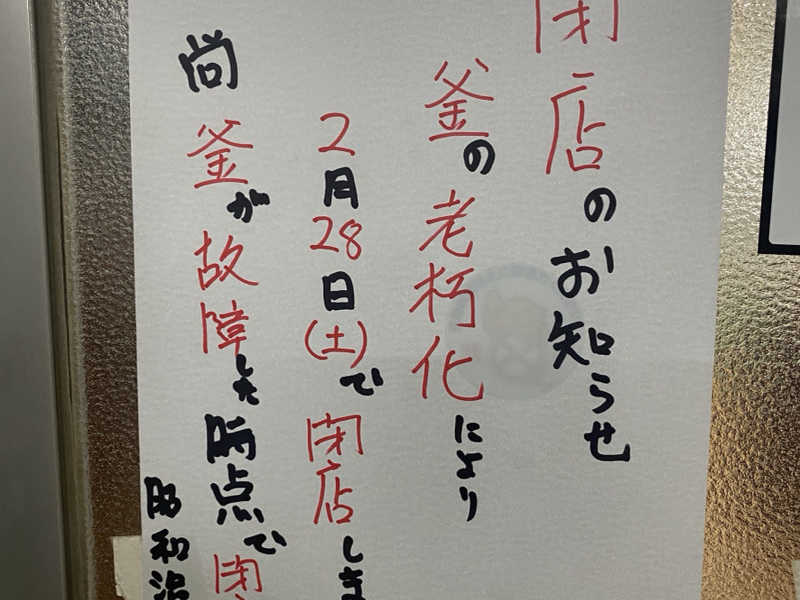 閉店のお知らせ
釜の老朽化により
2月28日(土)で閉店しま
尚釜が故障した時点で閉
昭和